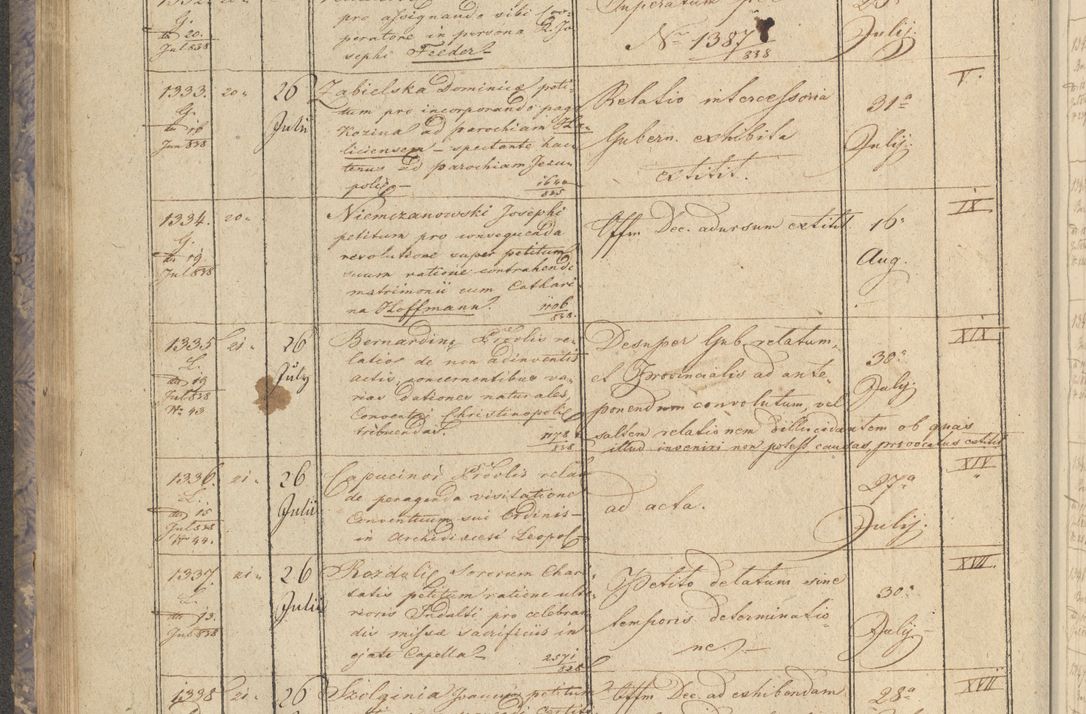 pro assignando sibi
peratore in persona
sephi Feeder
Nro 1387
838
Julij.
1333.
G.
Jun 838
20
26
Julii
Zabielska Dominica peti-
tum pro incorporando pag
Kozina ad parochiam Ha-
liciensem – spectante hac
tenus ad parochiam Jezu-
polis –
1640
838
Relatio intercessoria
Gubern. exhibita
extitit.
31a
Julij.
V.
1334.
G.
19
Jul 838
20
Niemczanowski Josephi
petitum pro consequenda
resolutione super petitum
suum ratione contrahendi
matrimonii cum Cathari-
na Hoffmann.
1196.
838.
Offm Dec. adursum extitit.
16a
Aug.
IX
1335
L.
19
Jul 838
Nr 43
21
26
July
Bernardinor Provlis re-
latio de non adinventis
actis, concernentibus va-
rias dationes naturales
Conventui Christinopoli
tribuendas.
1178
838
Desuper Gub. relatum,
et Provincialis ad ante-
ponendum convolutum, vel
saltem relationem dillucidantem ob quas
illud inveniri non potest causas, provocatus extitit
30a
July
XIX
1336.
L.
15
Jul 838
Nr 44.
21
26
Julii
Capucinor Provlis relat
de peragenda visitatione
Conventuum sui Ordinis –
in Archidioecesi Leopol
ad acta.
27a
Julij.
XIV
1337
L.
13.
Jul 838
21
26
Julii
Rozdoli Sororum Chari-
tatis petitum ratione ulte-
rioris Indulti pro celebran
dis missae sacrificiis in
ejate Capella
2571
838
Petito delatum sine
temporis determinatio-
ne.
30a
Julij –
XVII
1338
21
26
Szolginia Joannem petitum
Offm Dec. ad exhibendam
28a
XVII